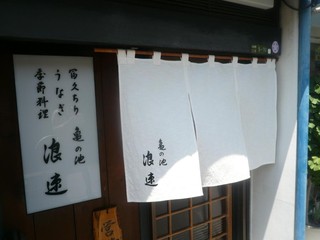 うなぎ
季節料理
亀の池
浪速
亀の池
浪速
営